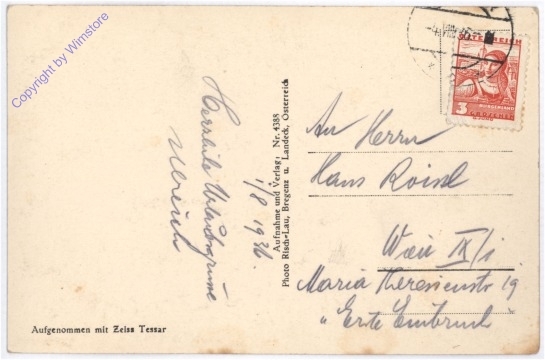 Copyright by Wimstore
ÖSTERREICH
BURGENLAND
3
GROSCHEN
Herzliche Urlaubsgrüsse
1/8 1936.
Aufnahme und Verlag: Nr. 4388
Photo Risch-Lau, Bregenz u. Landeck, Österreich
An Herrn
Hans
Wien IX/1
Maria Theresienstr 19
"Erste
Aufgenommen mit Zeiss Tessar